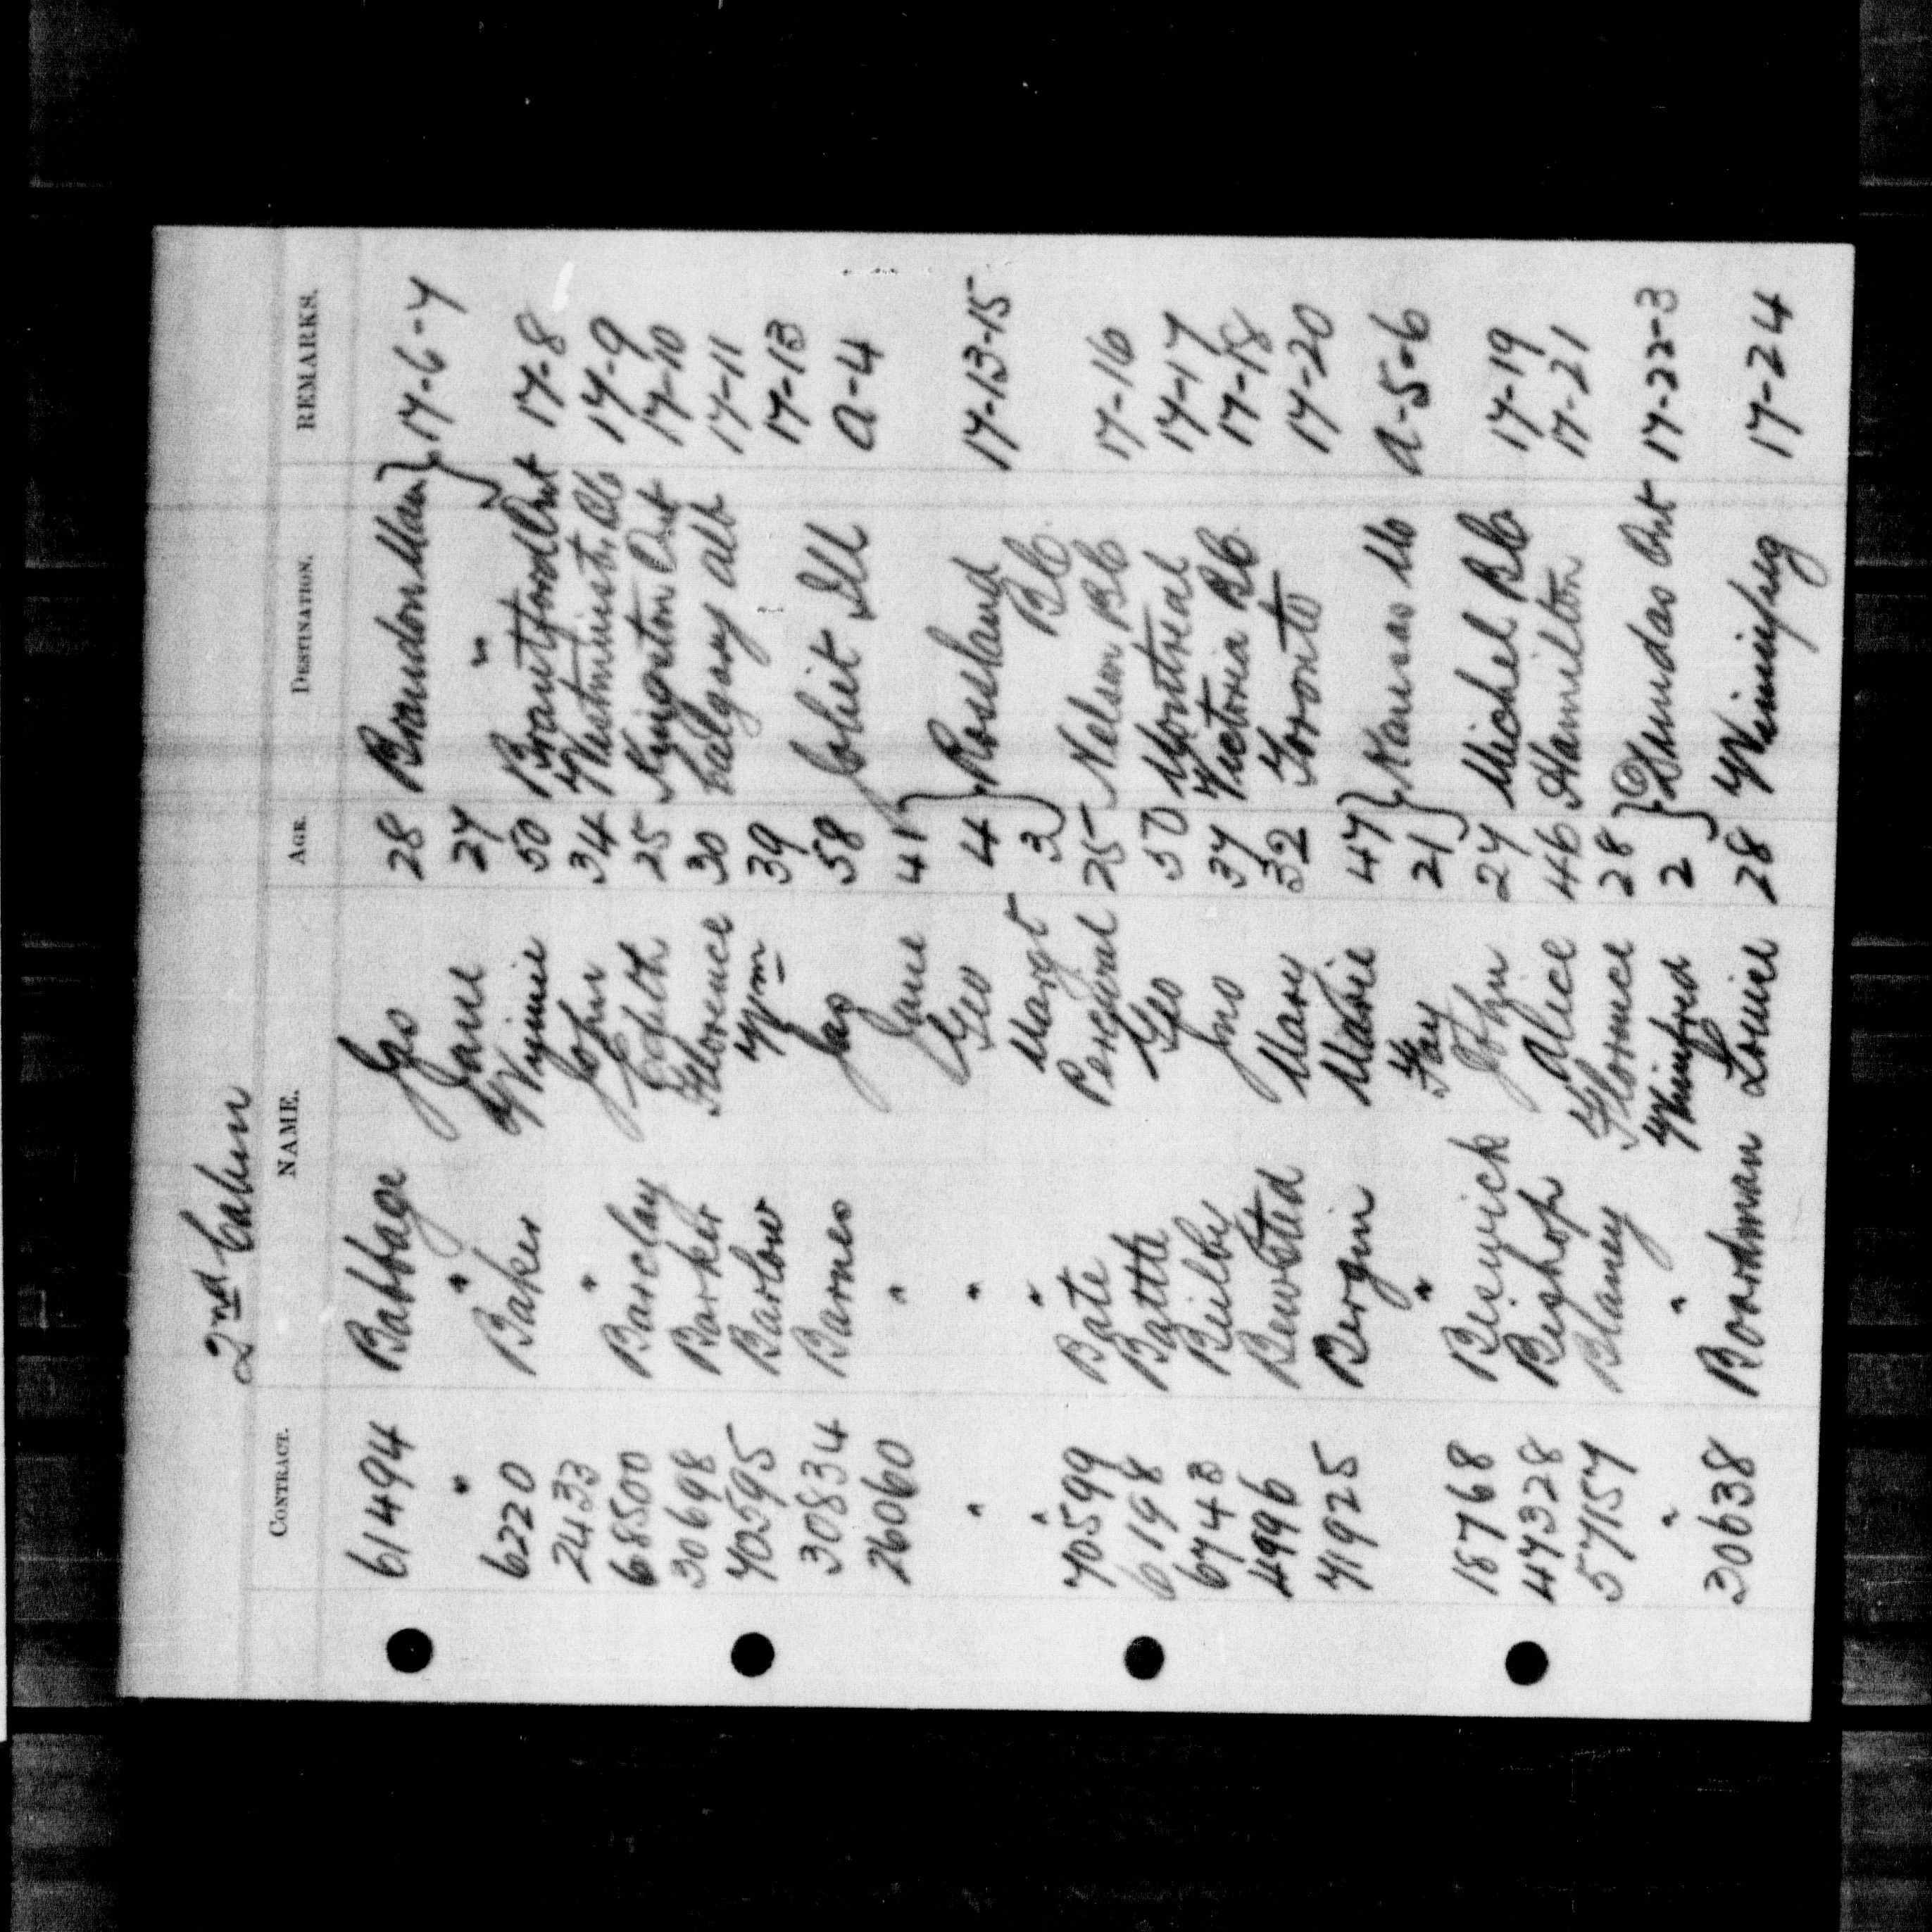 2nd Cabin
CONTRACT. NAME. AGE. DESTINATION. REMARKS.
61494 Babbage Geo 28 Brandon Man } 17-6-7
" " Jane 27 "
6220 Baker Winnie 50 Brantford Ont 17-8
2433 " John 34 Westminst. Bc 17-9
68500 Barclay Edith 25 Kingston Ont 17-10
30698 Barker Florence 30 Calgary alb 17-11
70595 Barlow Wm 39 17-13
30834 Barnes Jas 58 Joliet Ill a-4
26060 " Jane 41 } Rossland
" " Geo 4 BC 17-13-15
" " Margt 3
70599 Bate Percival 25 Nelson BC 17-16
6198 Batth Geo 50 Montreal 17-17
6743 Beilby Jno 37 Victoria BC 17-18
4996 Bewsted Mary 32 Toronto 17-20
71925 Bergin Marie 47 } Kansas Mo a-5-6
" Fay 21
18768 Beswick John 27 Michel BC 17-19
47328 Bishop Alice 46 Hamilton 17-21
57157 Blaney Florence 28 } Dundas Ont 17-22-3
" " Winifred 2
30638 Boardman Louise 28 Winnipeg 17-24